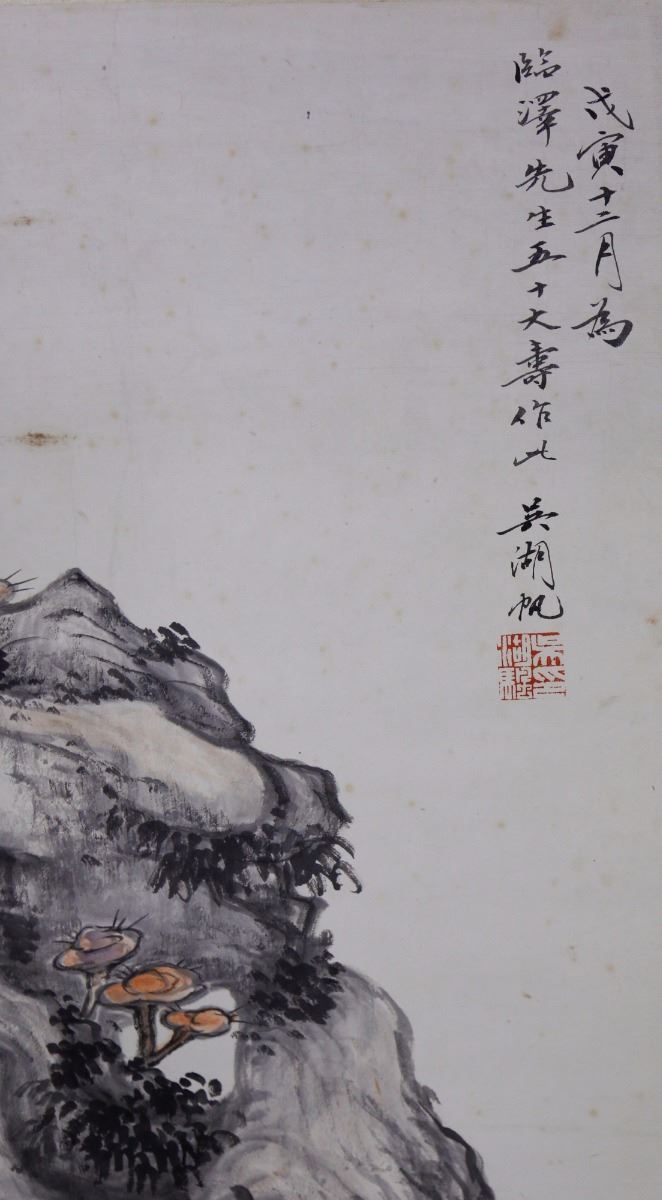 戊寅十二月為
臨澤先生五十大壽作此 吳湖帆
吳湖颿印